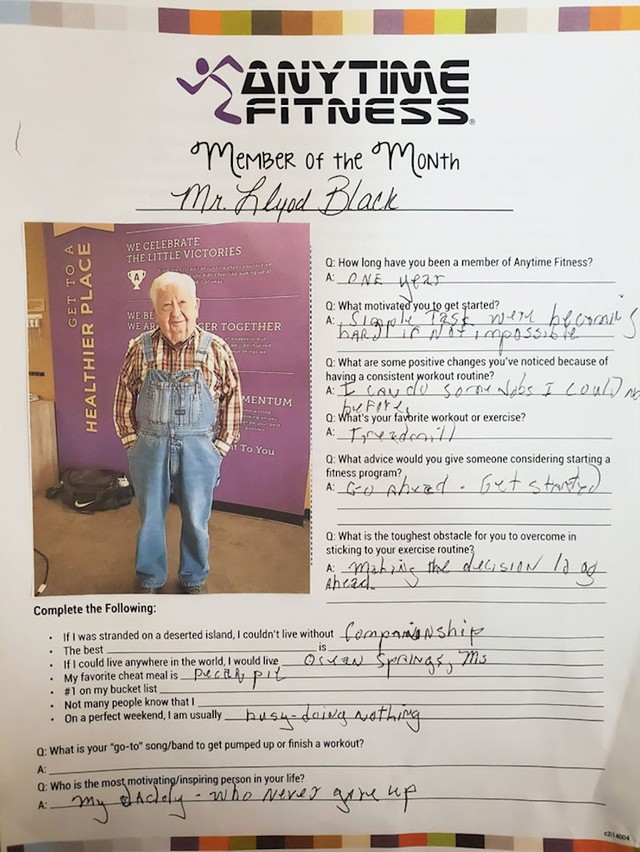 ANYTIME
FITNESS®
MEMBER OF THE MONTH
Mr. Llyod Black
GET TO A
HEALTHIER PLACE
WE CELEBRATE
THE LITTLE VICTORIES
A
WE BE
WE AR GER TOGETHER
MENTUM
nt To You
Q: How long have you been a member of Anytime Fitness?
A: ONE year
Q: What motivated you to get started?
A: Simple Task were becoming
hard if not impossible
Q: What are some positive changes you've noticed because of
having a consistent workout routine?
A: I can do some Jobs I could not
before
Q: What's your favorite workout or exercise?
A: Treadmill
Q: What advice would you give someone considering starting a
fitness program?
A: Go Ahead - Get started
Q: What is the toughest obstacle for you to overcome in
sticking to your exercise routine?
A: Making the decision to go
Ahead
Complete the Following:
• If I was stranded on a deserted island, I couldn't live without Companionship
• The best ____ is ____
• If I could live anywhere in the world, I would live Ocean Springs, Ms
• My favorite cheat meal is pecan pie
• #1 on my bucket list ____
• Not many people know that I ____
• On a perfect weekend, I am usually busy-doing nothing
Q: What is your "go-to" song/band to get pumped up or finish a workout?
A:
Q: Who is the most motivating/inspiring person in your life?
A: My Daddy - who never gave up
c2i14004